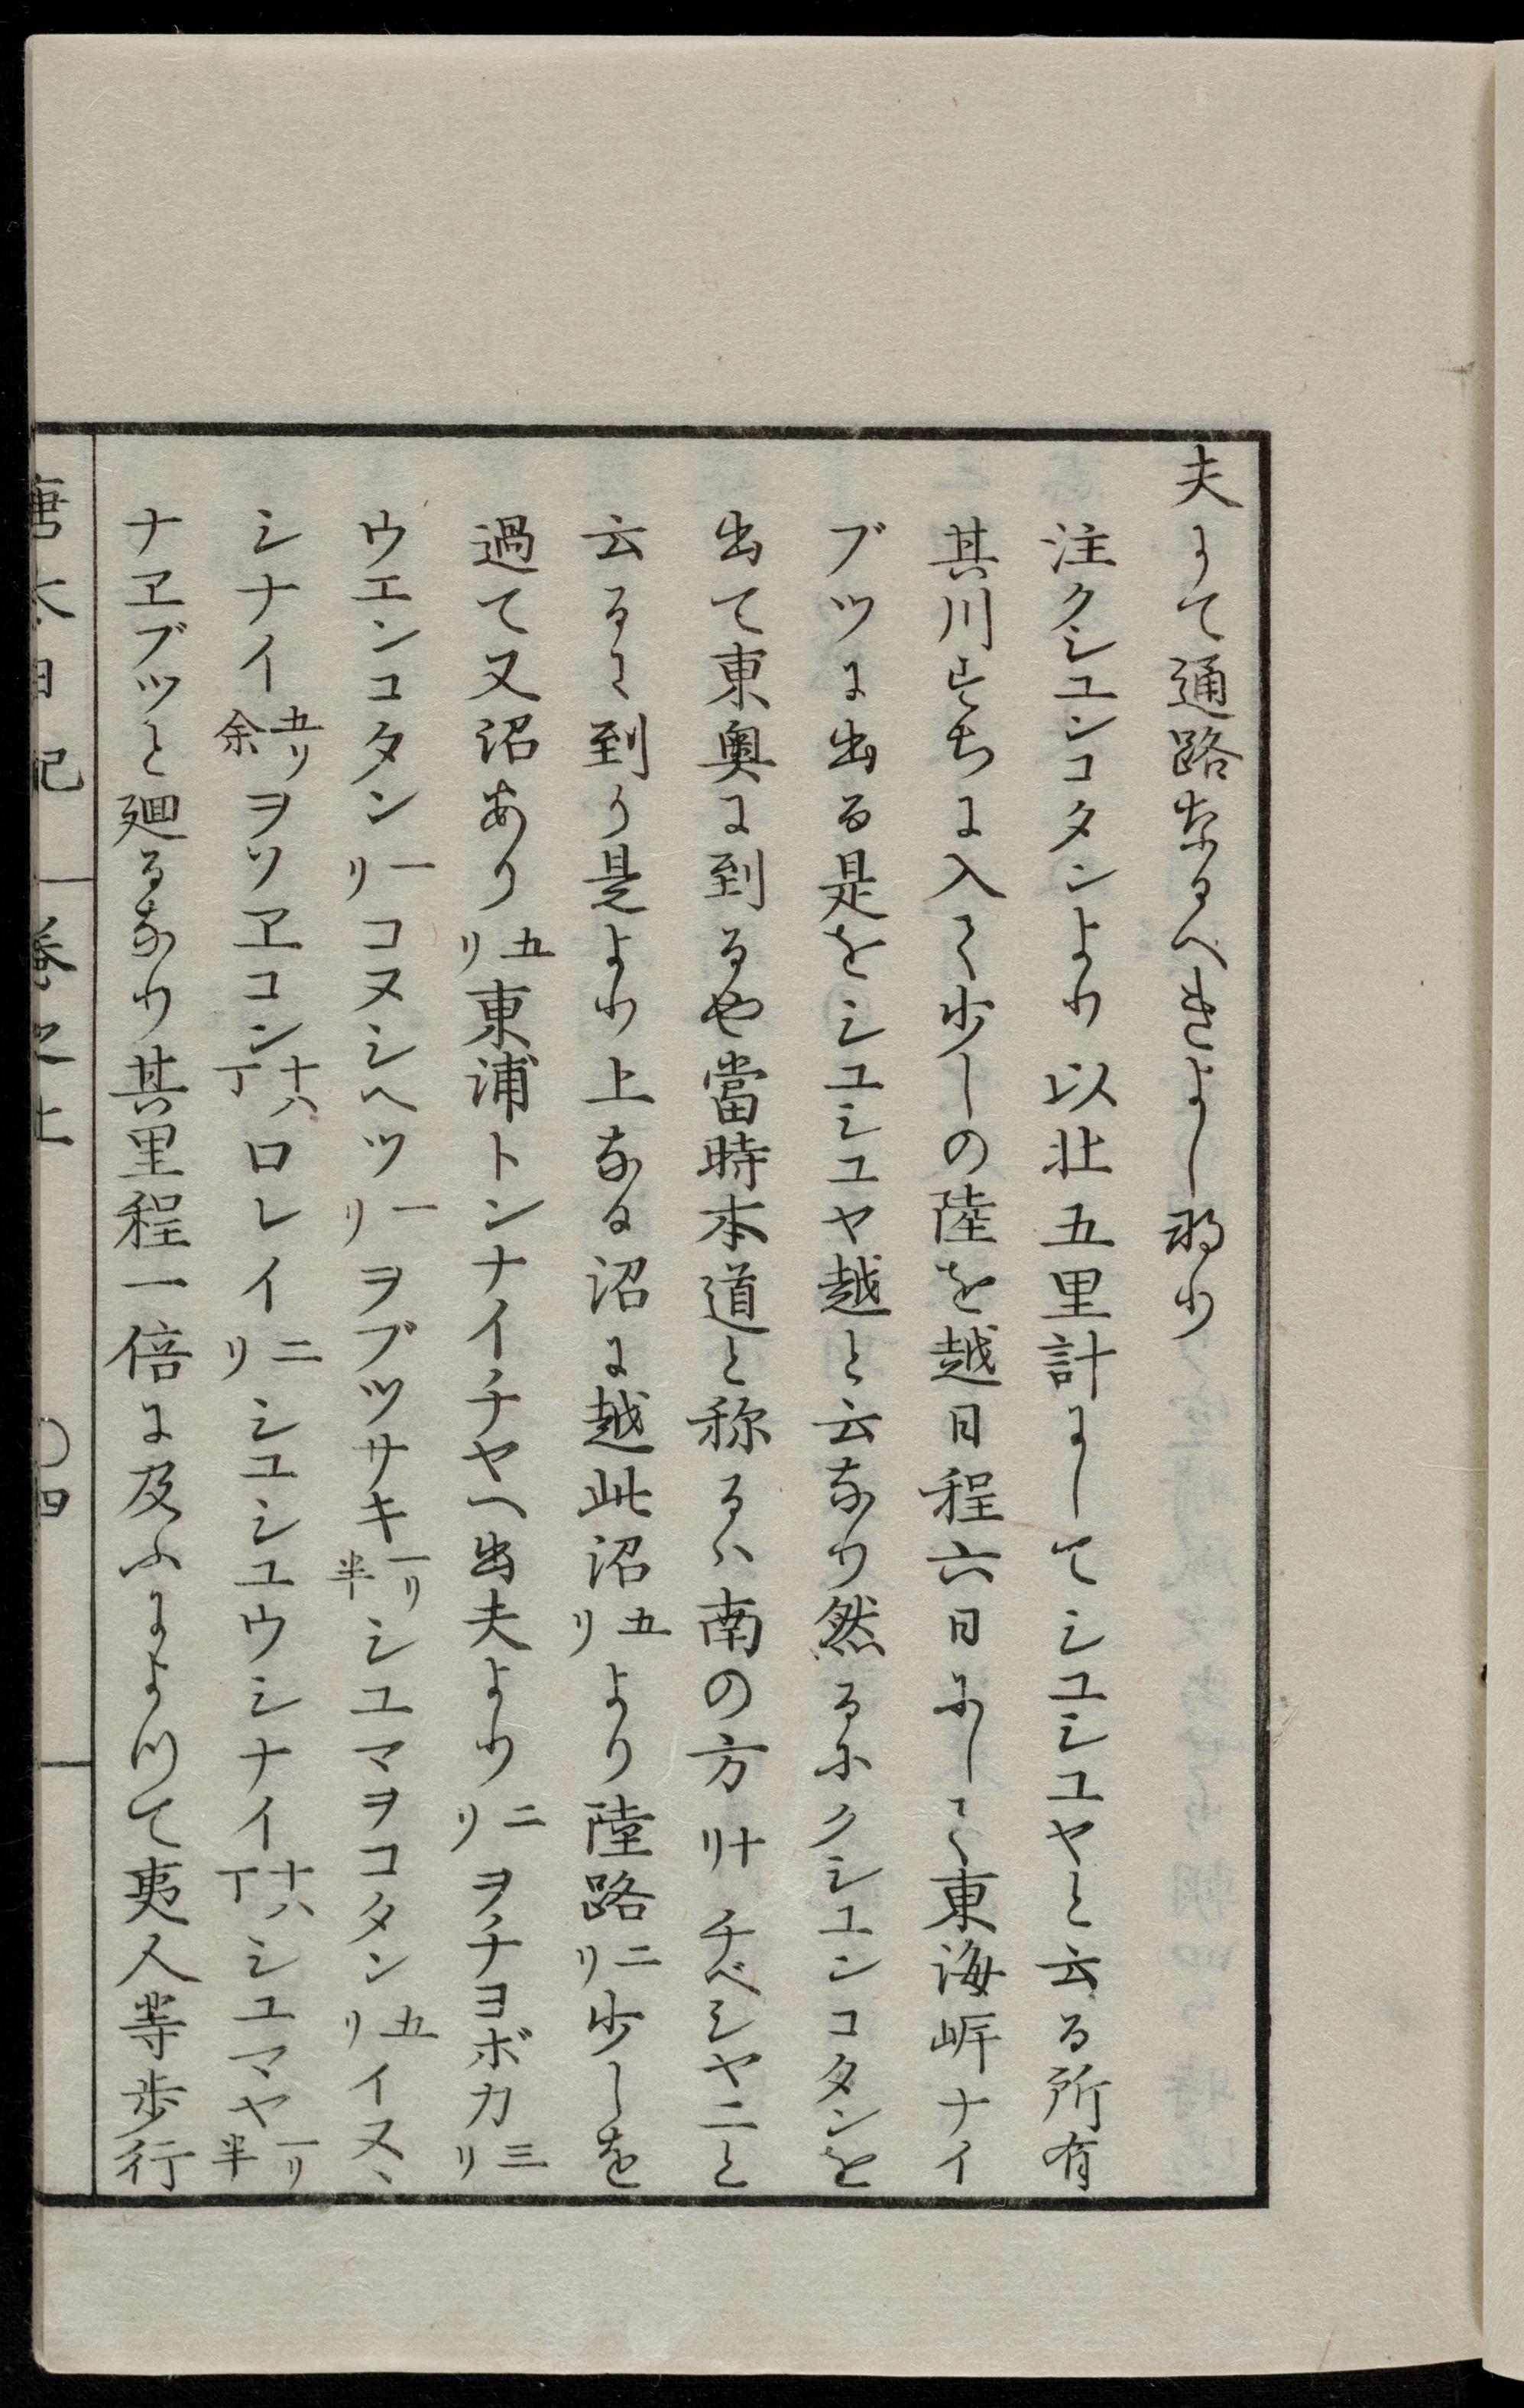 夫にて通路なるへきよし羽り
注クシユンコタンより以北五里計にしてシユシユヤと云る所有
其川すちに入て少しの陸を越日程六日にして東海岸ナイ
ブツに出る是をシユシユヤ越と云なり然るにクシユンコタンを
出て東奥に到るや當時本道と称るハ南の方十リチベシヤニと
云るに到り是より上なる沼に越此沼五リより陸路二リ少しを
過て又沼あり五リ東浦トンナイチヤへ出夫より二リヲチヨボカ三リ
ウエンコタン一リコヌシヘツ一リヲブツサキ一リ半シユマヲコタン五リイヌヽ
シナイ五リ余ヲソヱコン十八丁ロレイ二リシユシユウシナイ十八丁シユマヤ一リ半
ナヱブツと廻るなり其里程一倍に及ふによつて夷人等歩行
唐太日記 巻之上 〇四